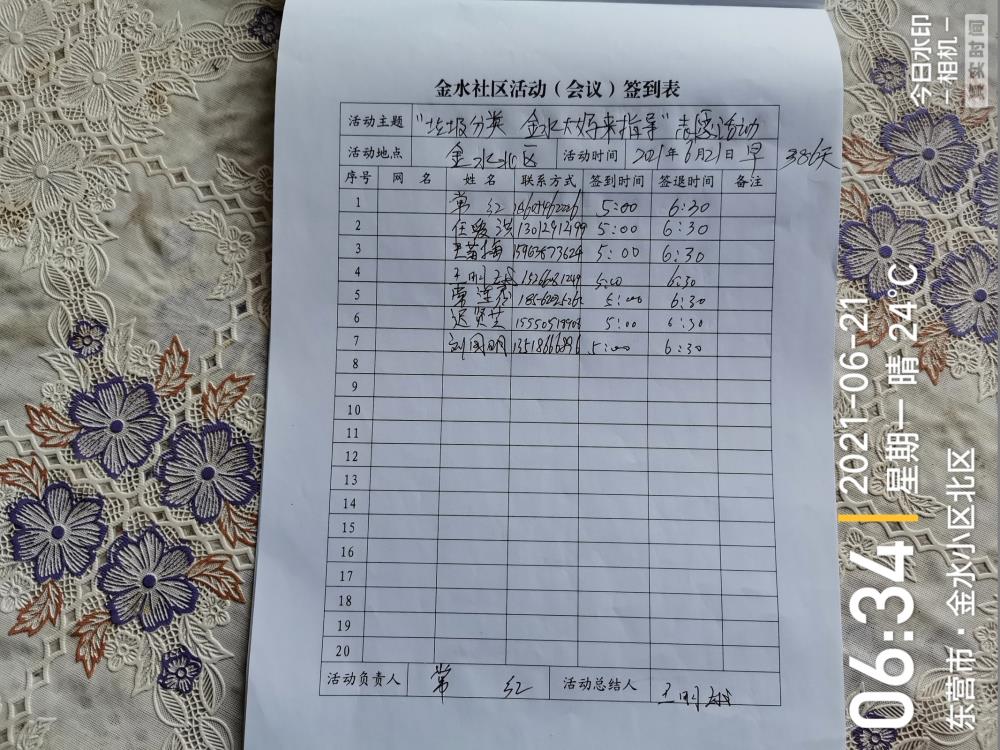 金水社区活动（会议）签到表
活动主题 "垃圾分类 金水大妈来指导"志愿活动
活动地点 金水北区 活动时间 2021年6月21日 早 386天
序号 网 名 姓 名 联系方式 签到时间 签退时间 备注
1 常 红 5:00 6:30
2 5:00 6:30
3 5:00 6:30
4 5:00 6:30
5 常莲 5:00 6:30
6 迟贤芝 5:00 6:30
7 刘国明 13518666896 5:00 6:30
8
9
10
11
12
13
14
15
16
17
18
19
20
活动负责人 常 红 活动总结人 王明
今日水印
–相机–
真实时间
06:34
2021-06-21
星期一 晴 24℃
东营市·金水小区北区